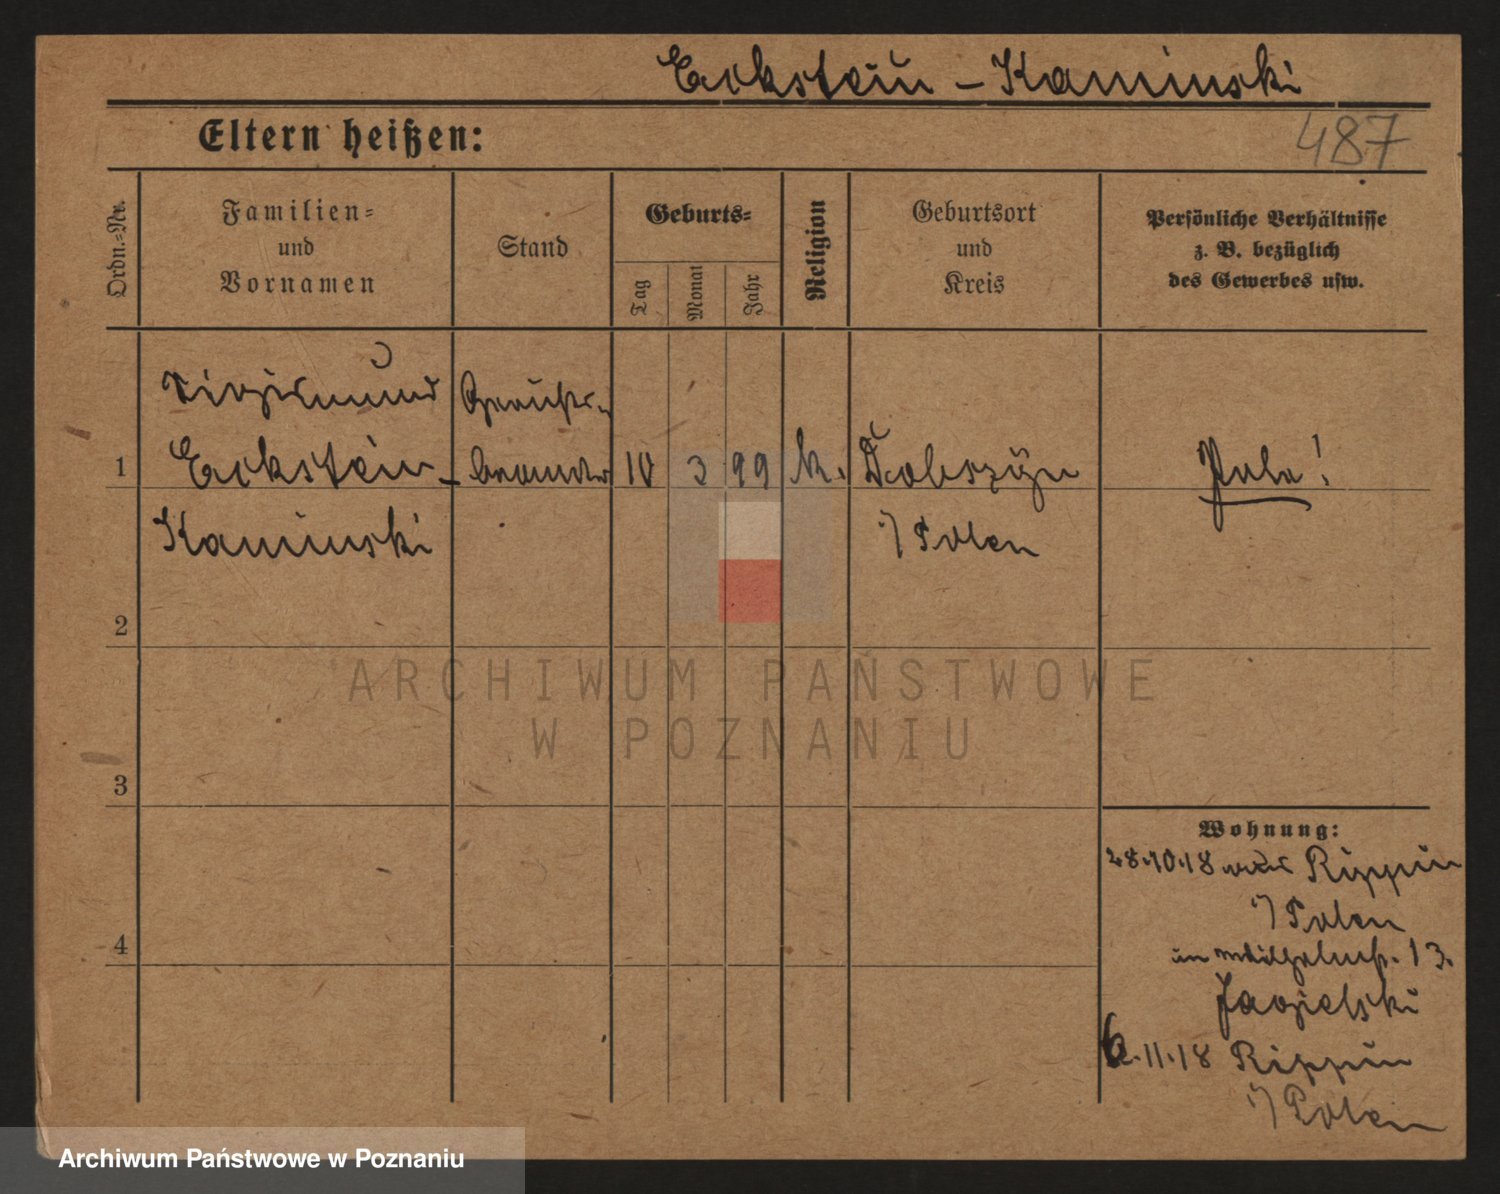 Eckstein - Kaminski
Eltern heißen:
487
Ordn.-Nr.
Familien-
und
Vornamen
Stand
Geburts-
Tag
Monat
Jahr
Religion
Geburtsort
und
Kreis
Persönliche Verhältnisse
z. B. bezüglich
des Gewerbes usw.
1
Eckstein -
Kaminski
10
3
99
k.
Dobszyn
i/ Polen
Pole!
2
3
4
Wohnung:
28.10.18 Rippin
i/ Polen
Wilhelmstr. 13.
Jagielski
6.11.18 Rippin
i/ Polen
ARCHIWUM PAŃSTWOWE
W POZNANIU
Archiwum Państwowe w Poznaniu